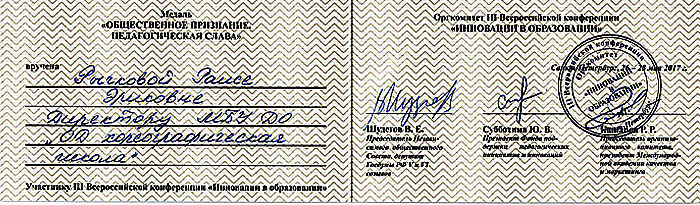 Медаль
«ОБЩЕСТВЕННОЕ ПРИЗНАНИЕ.
ПЕДАГОГИЧЕСКАЯ СЛАВА»
вручена
Рычковой Раисе
Эриковне
Директору МБУ ДО
"ОД хореографическая
школа"
Участнику III Всероссийской конференции «Инновации в образовании»
Оргкомитет III Всероссийской конференции
«ИННОВАЦИИ В ОБРАЗОВАНИИ»
Санкт-Петербург, 26 – 28 мая 2017 г.
III Всероссийской конференции
Оргкомитет
«ИННОВАЦИИ
В ОБРАЗОВАНИИ»
Шудегов В. Е.
Председатель Независимого общественного
Совета, депутат
Госдумы РФ V и VI
созывов
Субботина Ю. В.
Президент Фонда под-
держки педагогических
инициатив и инноваций
Р. Р.
Председатель организа-
ционного комитета,
президент Международ-
ной академии качества
и маркетинга